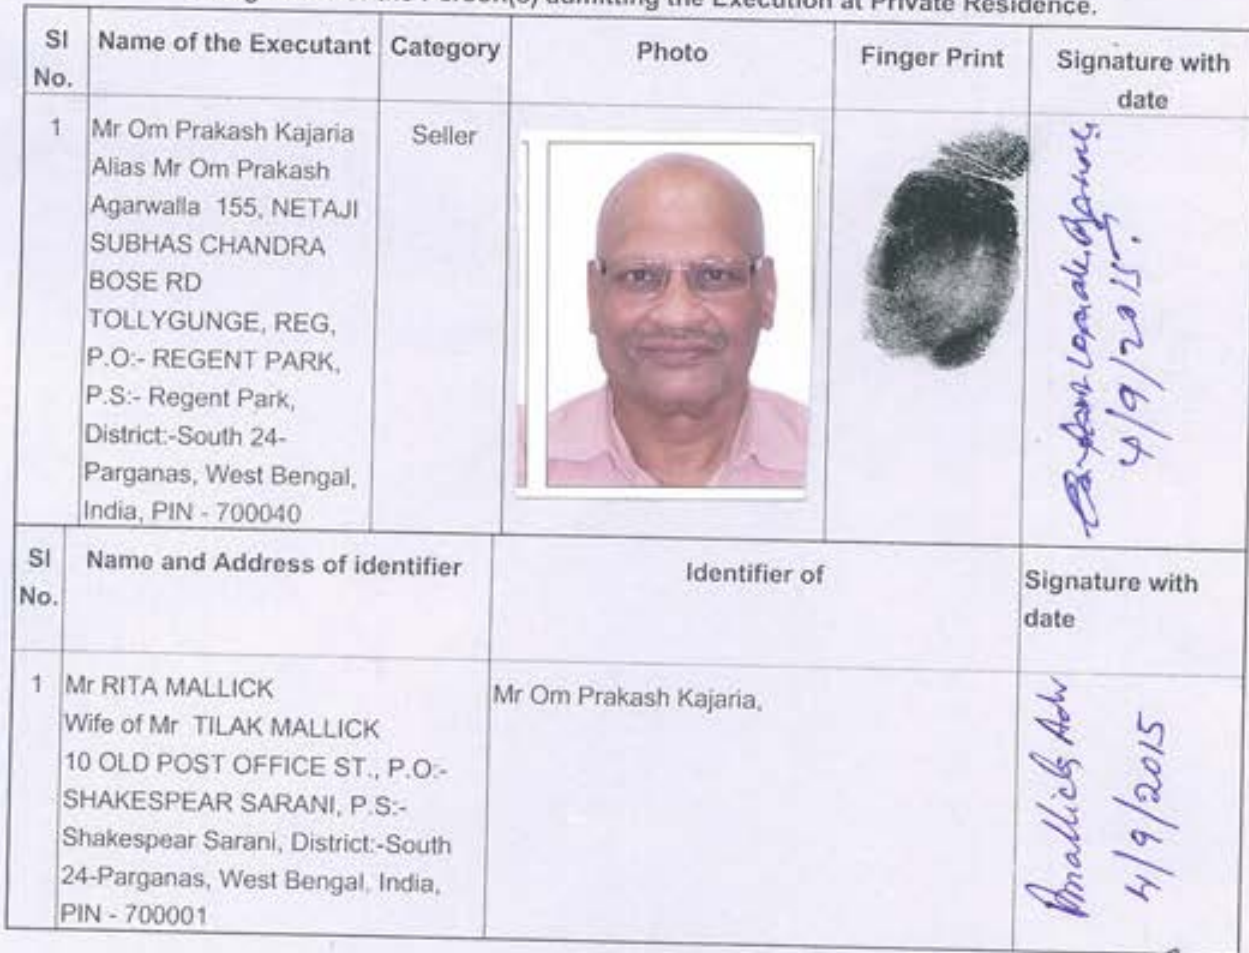 the Person(s) admitting the Execution at Private Residence.
Sl No.
Name of the Executant
Category
Photo
Finger Print
Signature with date
1
Mr Om Prakash Kajaria
Alias Mr Om Prakash
Agarwalla 155, NETAJI
SUBHAS CHANDRA
BOSE RD
TOLLYGUNGE, REG,
P.O:- REGENT PARK,
P.S:- Regent Park,
District:-South 24-
Parganas, West Bengal,
India, PIN - 700040
Seller
4/9/2015.
Sl No.
Name and Address of identifier
Identifier of
Signature with
date
1
Mr RITA MALLICK
Wife of Mr TILAK MALLICK
10 OLD POST OFFICE ST., P.O:-
SHAKESPEAR SARANI, P.S:-
Shakespear Sarani, District:-South
24-Parganas, West Bengal, India,
PIN - 700001
Mr Om Prakash Kajaria,
Rmallick Adv
4/9/2015